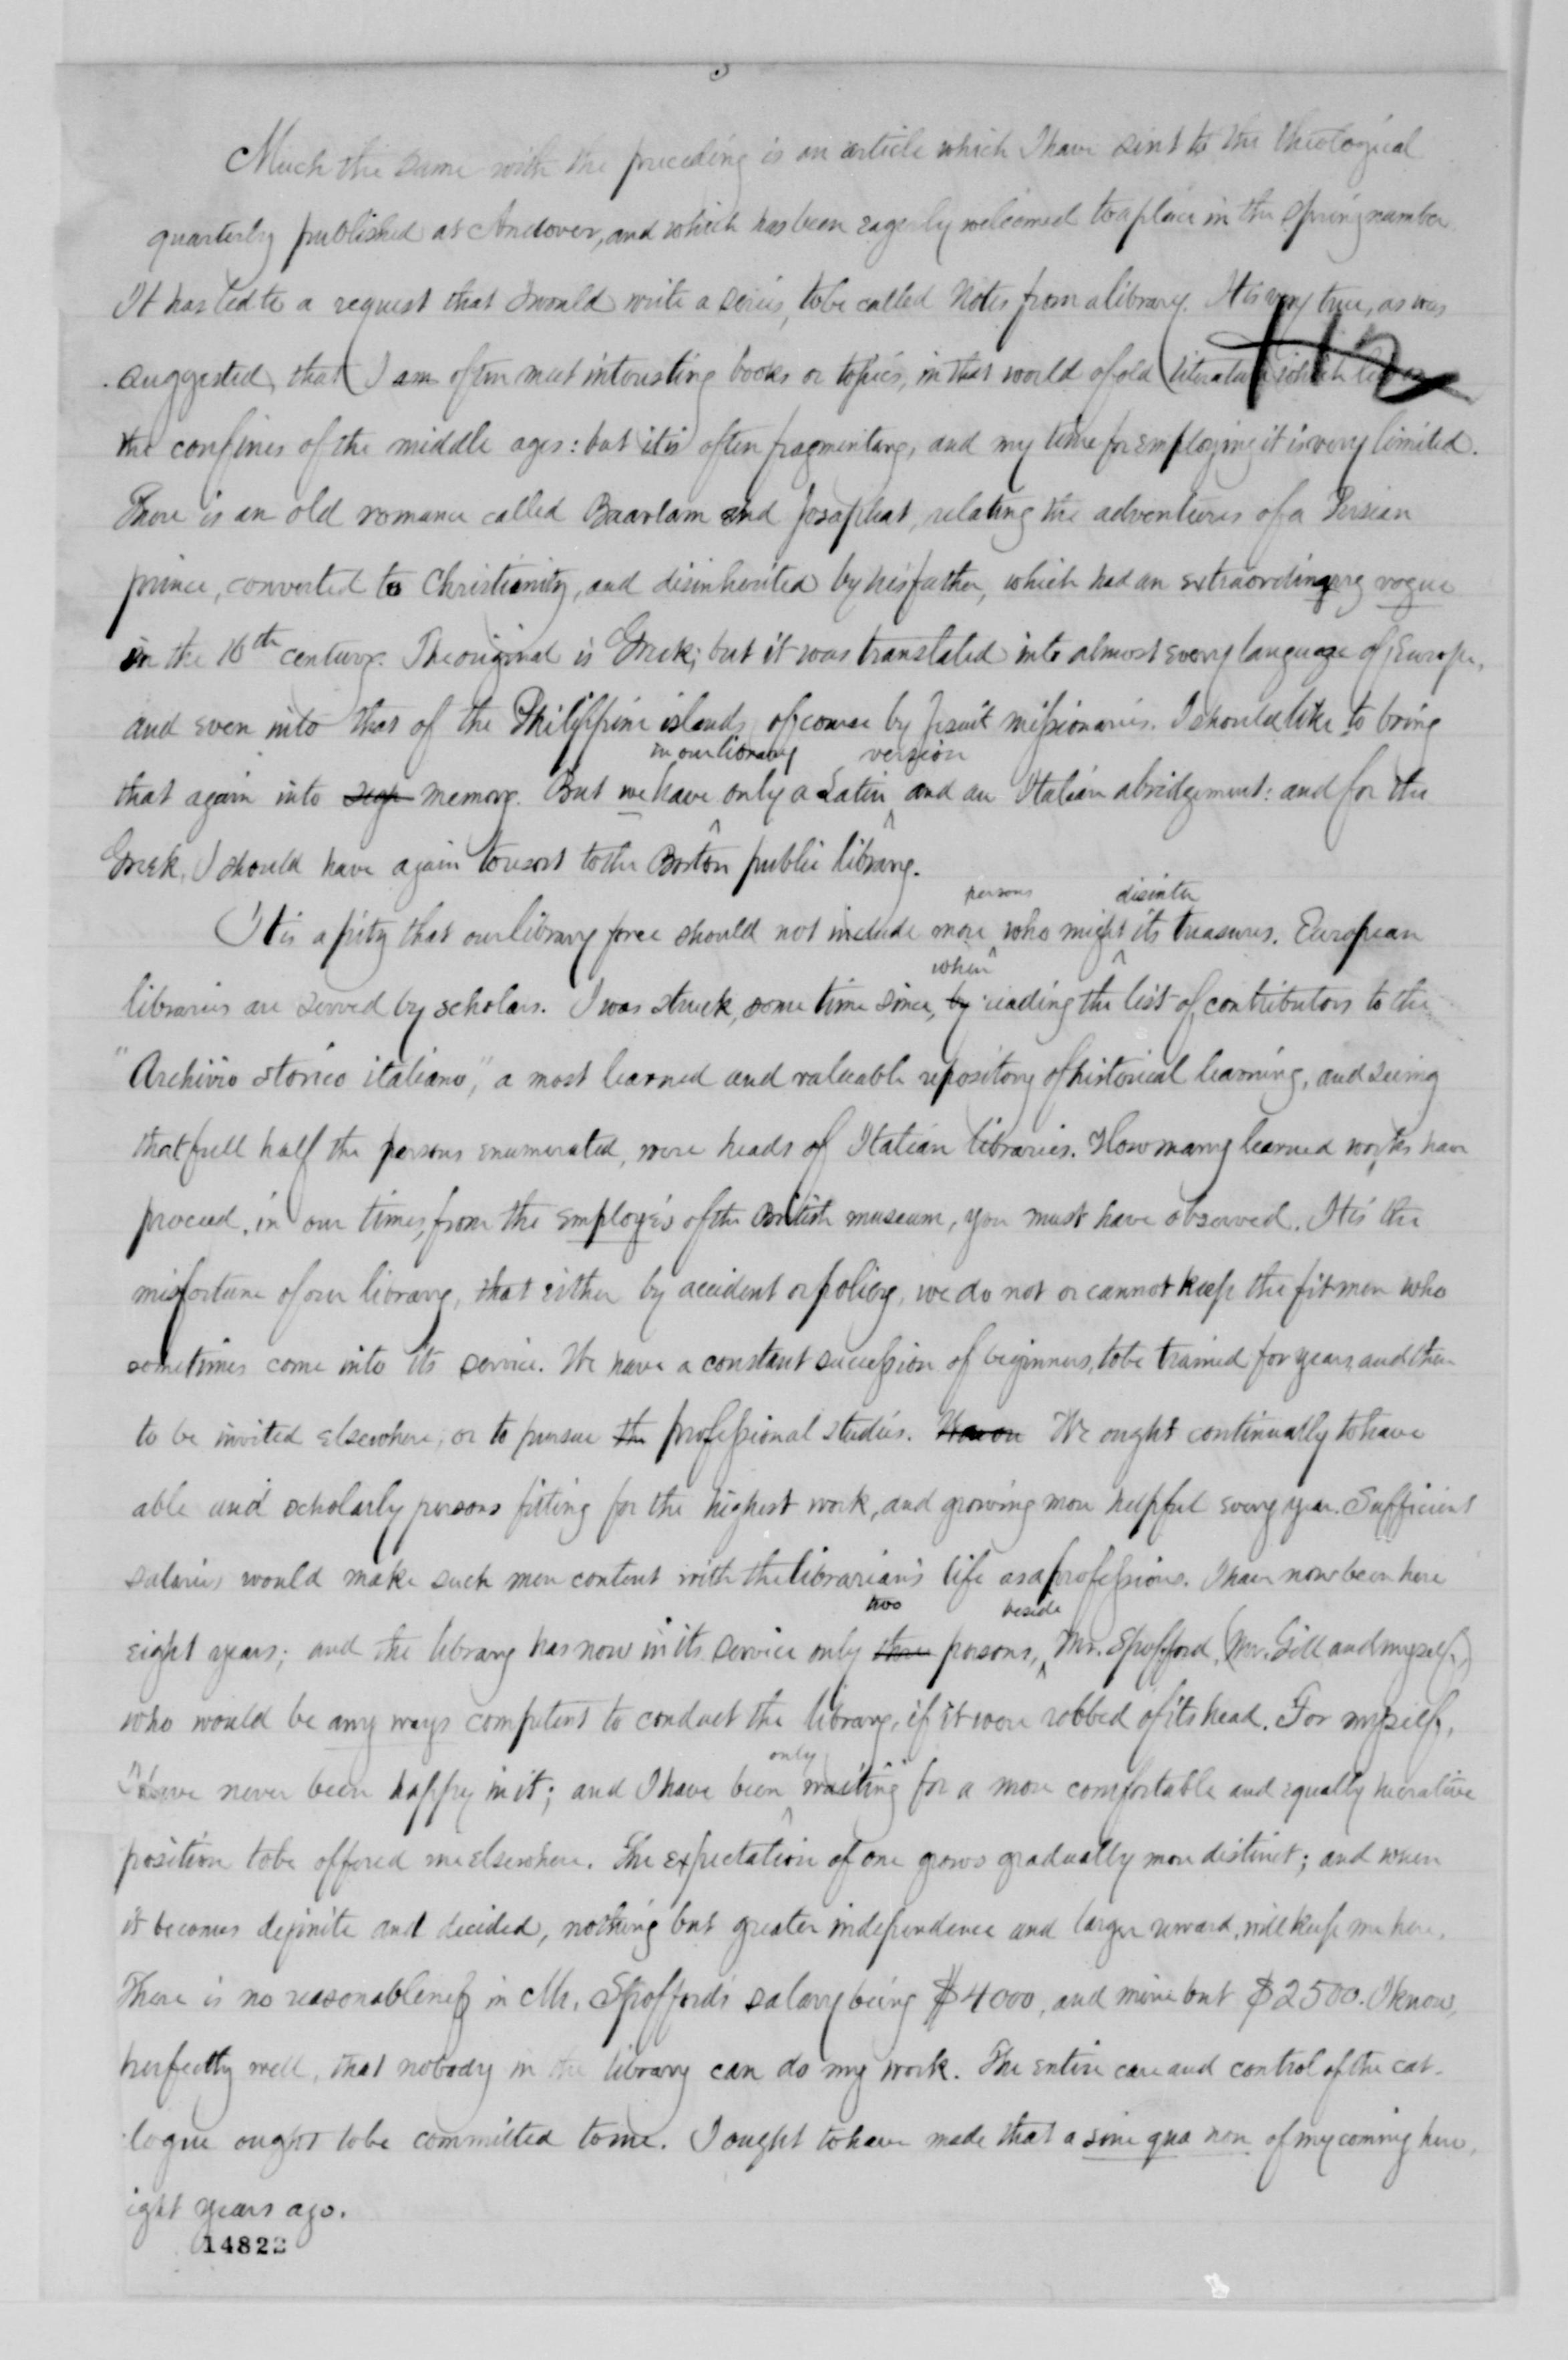 Much the same with the preceding is an article which I have sent to the theological
quarterly published at Andover, and which has been eagerly welcomed to a place in the spring number.
It has led to a request that I would write a series, to be called Notes from a library. It is very true, as was
suggested, that I am often meet interesting books or topics, in that world of old literature which
the confines of the middle ages: but it is often fragmentary, and my time for employing it is very limited.
There is an old romance called Baarlam and Josaphat, relating the adventures of a Persian
prince, converted to Christianity, and disinherited by his father, which had an extraordinary vogue
in the 16th century. The original is Greek; but it was translated into almost every language of Europe,
and even into that of the Philippine islands, of course by Jesuit missionaries. I should like to bring
in our library version
that again into memory. But we have only a Latin and an Italian abridgement: and for the
Greek, I should have again to resort to the Boston public library.
persons disinter
It is a pity that our library force should not include more who might its treasures. European
when
libraries are served by scholars. I was struck, some time since, by reading the list of contributors to the
"Archivio storico italiano," a most learned and valuable repository of historical learning, and seeing
that full half the persons enumerated, were heads of Italian libraries. How many learned works have
proceed, in our times, from the employés of the British museum, you must have observed. It is the
misfortune of our library, that either by accident or policy, we do not or cannot keep the fit men who
sometimes come into its service. We have a constant succession of beginners, to be trained for years, and then
to be invited elsewhere, or to pursue the professional studies. We ought continually to have
able and scholarly persons fitting for the highest work, and growing more helpful every year. Sufficient
salaries would make such men content with the librarian's life as a profession. I have now been here
two beside
eight years; and the library has now in its service only three persons, Mr. Spofford, (Mr. Gill and myself,)
who would be any ways competent to conduct the library, if it were robbed of its head. For myself,
only
I have never been happy in it; and I have been waiting for a more comfortable and equally lucrative
position to be offered me elsewhere. The expectation of one grows gradually more distinct; and when
it becomes definite and decided, nothing but greater independence and larger reward, will keep me here.
There is no reasonableness in Mr. Spofford's salary being $4000, and mine but $2500. I know,
perfectly well, that nobody in the library can do my work. The entire care and control of the cat-
logue ought to be committed to me. I ought to have made that a sine qua non of my coming here,
ight years ago.
14822